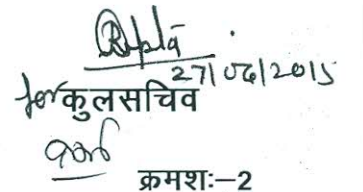 27/06/2015
for कुलसचिव
क्रमशः–2